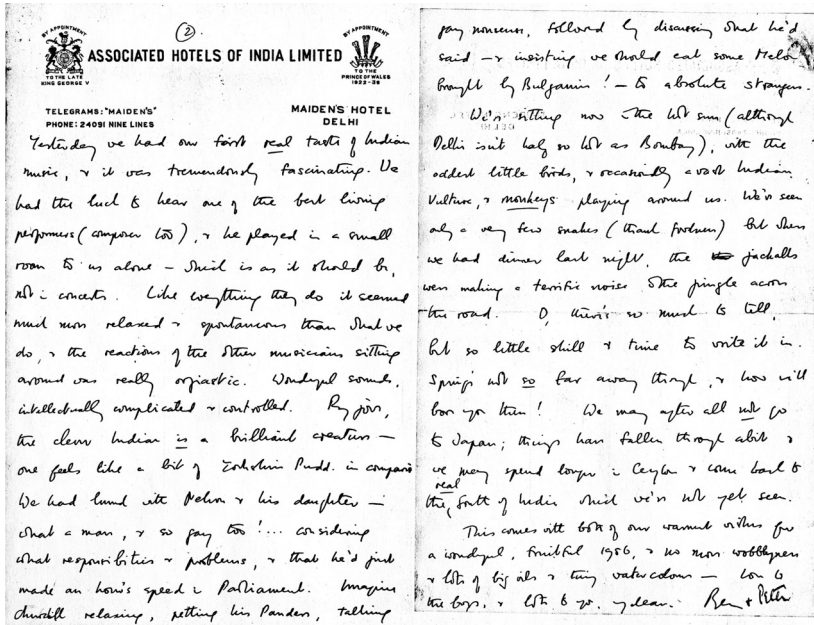 (2)
BY APPOINTMENT
TO THE LATE
KING GEORGE V
ASSOCIATED HOTELS OF INDIA LIMITED
BY APPOINTMENT
TO THE
PRINCE OF WALES
1922-36
TELEGRAMS: "MAIDEN'S"
PHONE: 24091 NINE LINES
MAIDEN'S HOTEL
DELHI
Yesterday we had our first real taste of Indian
music, & it was tremendously fascinating. We
had the luck to hear one of the best living
performers (composer too), & he played in a small
room to us alone – which is as it should be,
not in concerts. Like everything they do it seemed
much more relaxed & spontaneous than what we
do, & the reactions of the other musicians sitting
around was really orgiastic. Wonderful sounds,
intellectually complicated & controlled. By jove,
the clever Indian is a brilliant creature –
one feels like a bit of Yorkshire Pudd. in comparis
We had lunch with Nehru & his daughter –
what a man, & so gay too!... considering
what responsibilities & problems, & that he'd just
made an hour's speech in Parliament. Imagine
Churchill relaxing, petting his Pandas, talking
gay nonsense, followed by discussing what he'd
said – & insisting we should eat some Melon
brought by Bulganin! – to absolute strangers.
We're sitting now in the hot sun (although
Delhi isn't half so hot as Bombay), with the
oddest little birds, & occasionally a vast Indian
Vulture, & monkeys playing around us. We've seen
only a very few snakes (thank goodness) but when
we had dinner last night, the jackalls
were making a terrific noise in the jungle across
the road. O, there's so much to tell,
but so little skill & time to write it in.
Spring's not so far away though, & how I'll
bore you then! We may after all not go
to Japan; things have fallen through a bit &
we may spend longer in Ceylon & come back to
the real South of India which we've not yet seen.
This comes with both of our warmest wishes for
a wonderful, fruitful 1956, & no more wobblyness
& lots of big oils & tiny watercolours – love to
the boys, & lots to you, my dear.
Ben & Peter